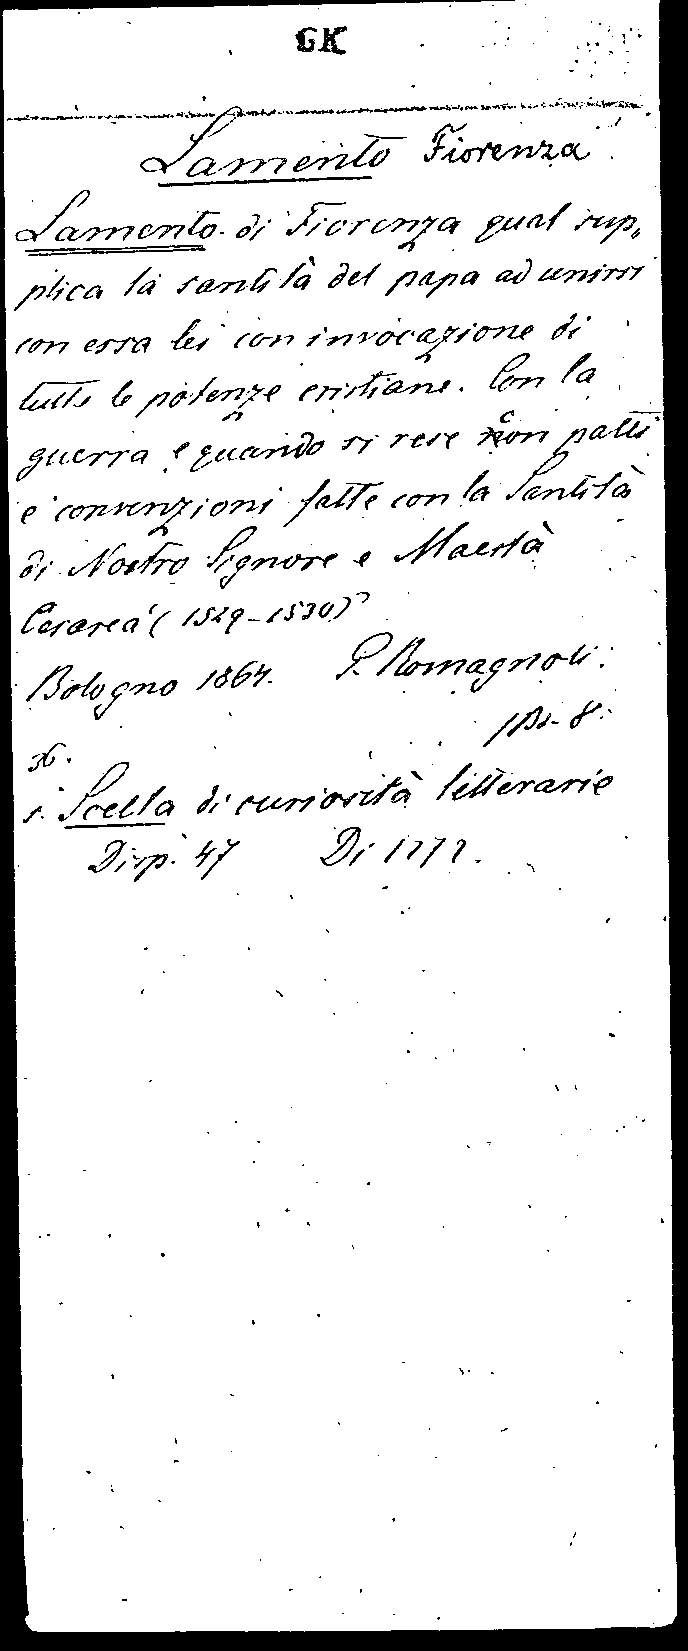 GK
Lamento Fiorenza
Lamento di Fiorenza qual sup„
plica la santità del papa ad unirsi
con essa lei con invocazione di
tutte le potenze cristiane. Con la
guerra e quando si rese con patti
e convenzioni fatte con la Santità
di Nostro Signore e Maestà
Cesarea (1529-1530)
Bologno 1864. Romagnoli.
1 Bd. 8.
36.
s. Scelta di curiosità letterarie
Disp. 47 Di 1272.